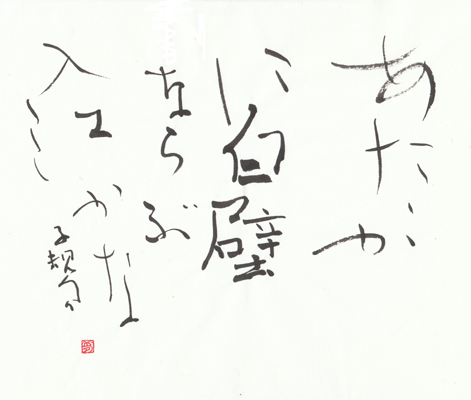 あたゝか
に白壁
ならぶ
入江かな
子規句